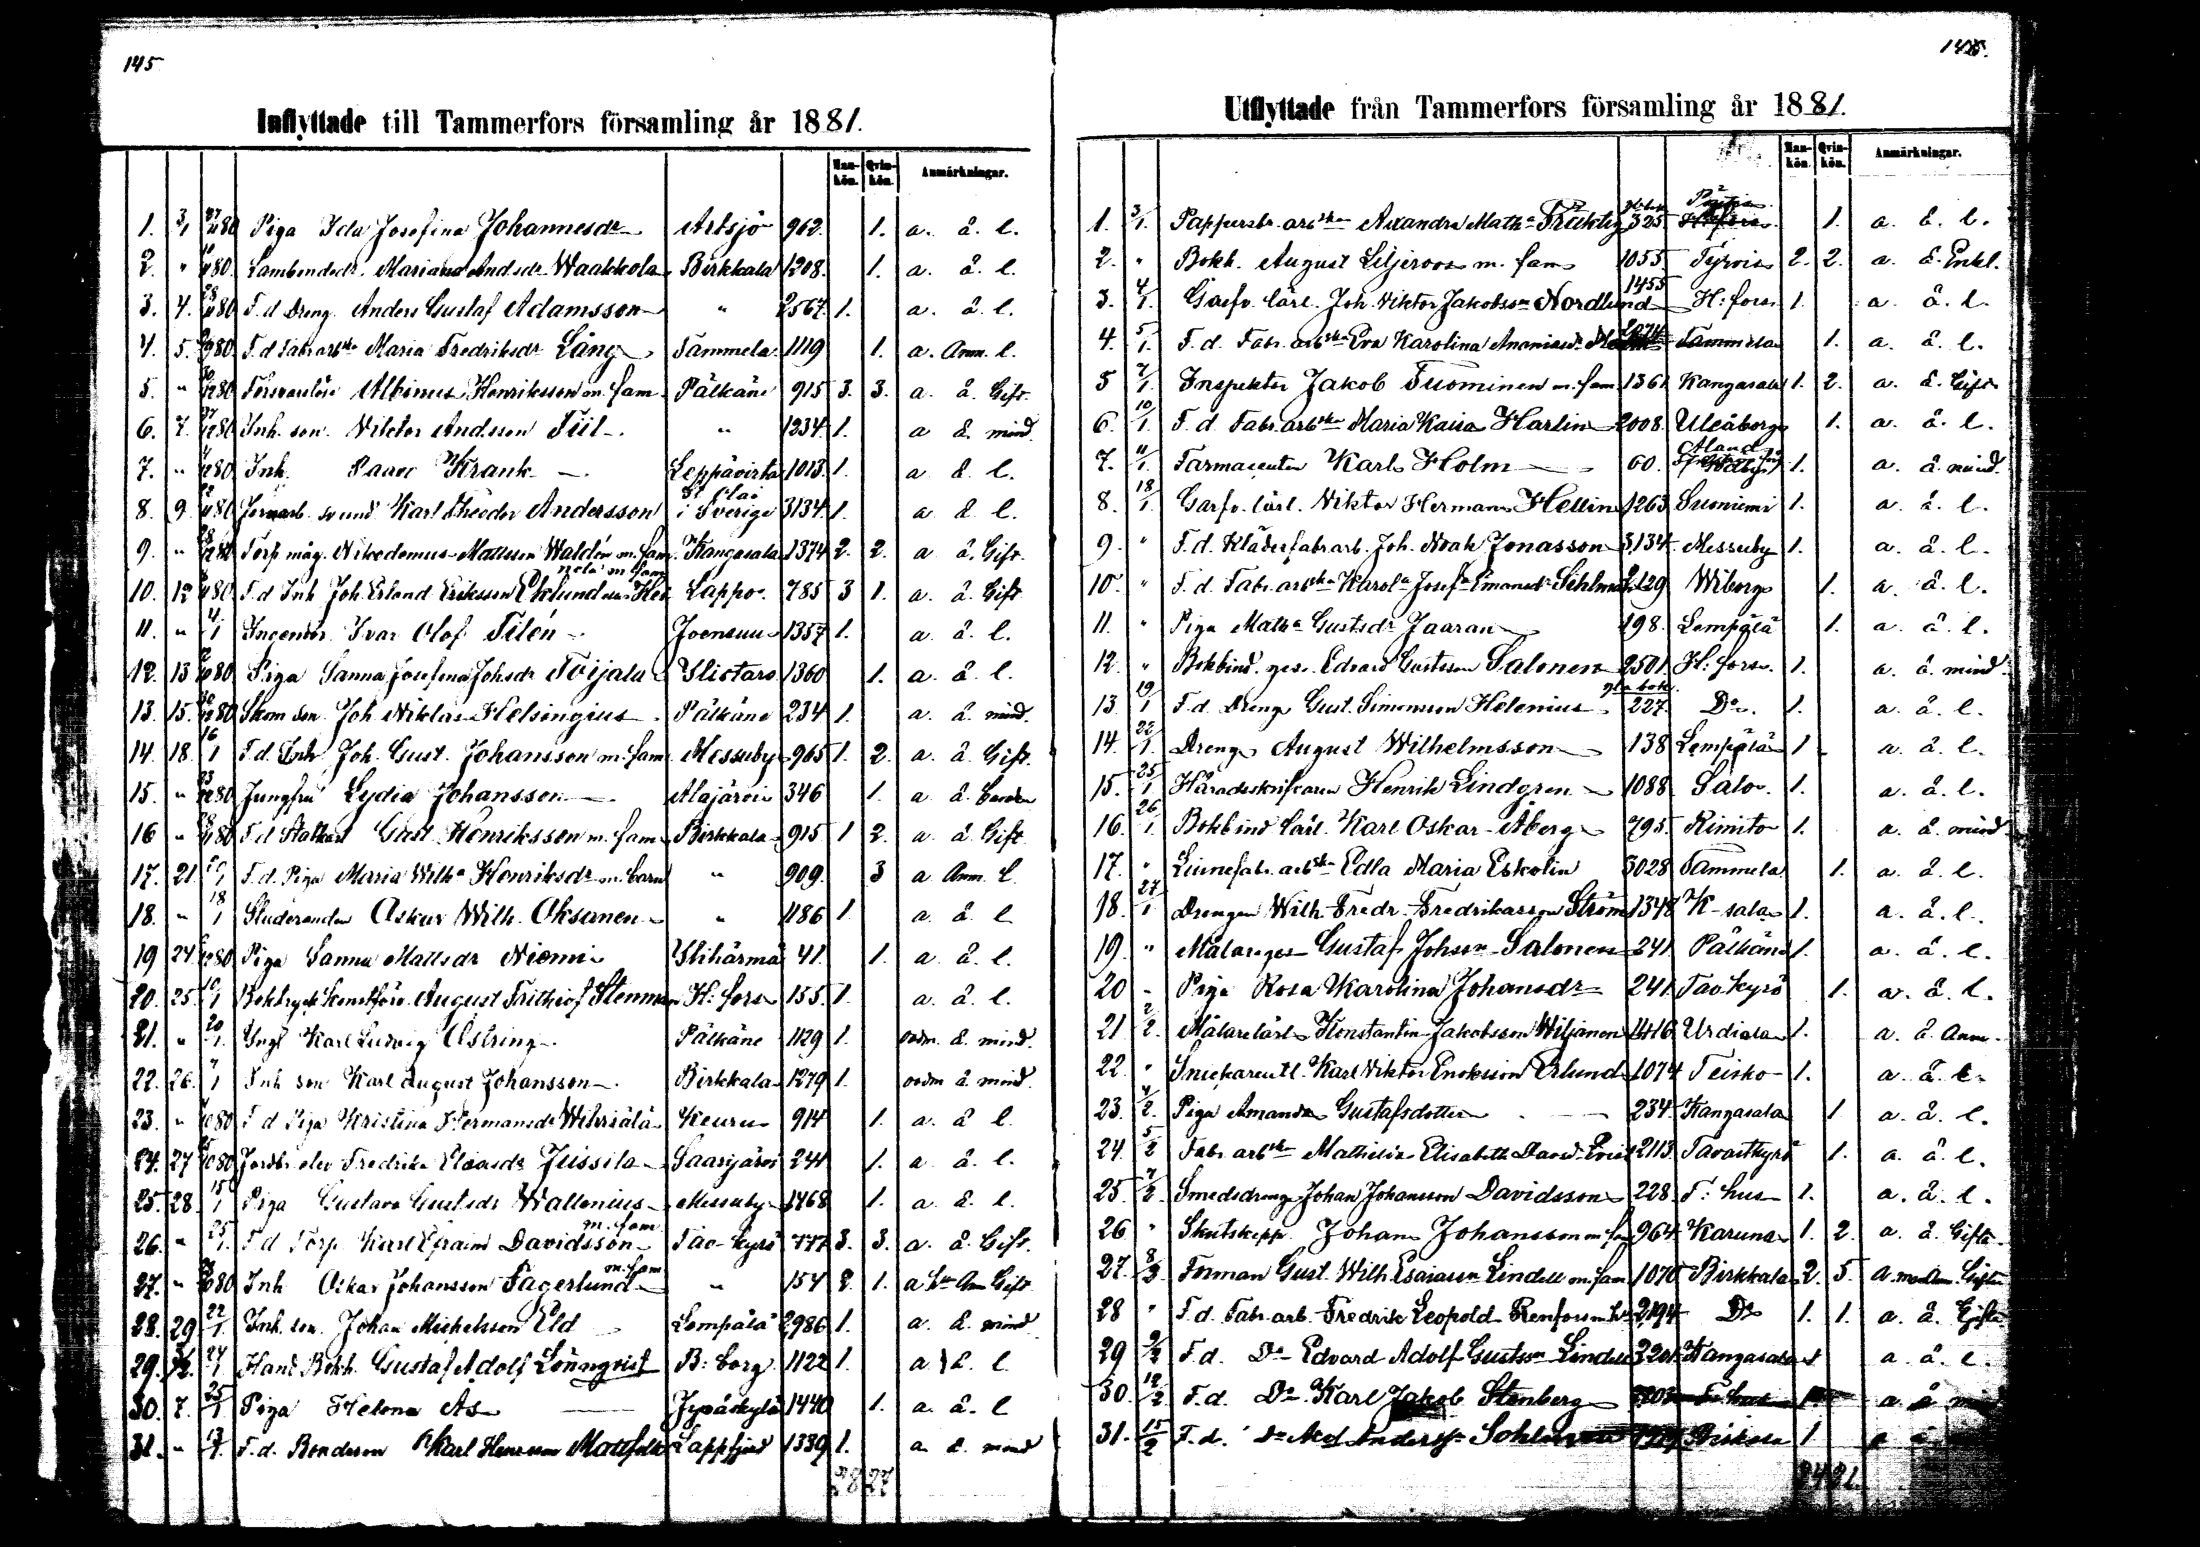 145
Inflyttade till Tammerfors församling år 1881.
Mankön. Qvinkön. Anmärkningar.
1. 3/1 80 Piga Ida Josefina Johannesdr Artsjö 962. 1. a. å. l.
2. " 80 Mariana Andsdr Waakkola Birkkala 1208. 1. a. å. l.
3. 4. 80 F.d Dreng Anders Gustaf Adamsson " 2567. 1. a. å. l.
4. 5. 80 F.d Fabr arbska Maria Fredriksdr Lång Tammela 1119 1. a. Anm. l.
5. " 80 Albinus Henriksson m. fam Pälkäne 915 3. 3. a. å. Gift.
6. 7. 80 Inh. son. Viktor Andsson Tiil " 1234. 1. a å. mind.
7. " 80 Inh. Paavo Krank Leppävirta 1013. 1. a å. l.
8. 9. 80 Karl Theodor Andersson i Sverige 3134. 1. a å. l.
9. " 80 Torp måg. Nikodemus Mattsson Waldén m. fam. Kangasala 1374 2. 2. a å. Gift.
10. 12 80 F.d Inh Joh. Erland Eriksson Eklund m fam Lappo. 785 3 1. a. å. Gift
11. " Ingeniör Ivar Olof Tilén Joensuu 1357 1. a å. l.
12. 13 80 Piga Sanna Josefina Johsdr Toijala Ylistaro 1360 1. a. å. l.
13. 15. 80 Skom son. Joh. Niklas Helsingius Pälkäne 234 1. a. å. mind.
14. 18. 16/1 F.d. Inh Joh. Gust. Johansson m. fam Messuby 965 1. 2. a. å. Gift.
15. " 80 Jungfru Lydia Johansson Alajärvi 346 1. a å.
16 " 80 F.d Gust Henriksson m. fam Birkkala 915 1 2. a å. Gift
17. 21. F.d. Piga Maria Wilha Henriksdr m. barn " 909. 3 a Anm. l.
18. " 18/1 Studeranden Oskar Wilh. Oksanen " 1186 1. a. å. l
19 24. 80 Piga Sanna Mattsdr Niemi Ylihärmä 41. 1. a. å. l.
20. 25. 10/1 August Frithiof Stenman H:fors 155. 1. a. å. l.
21. " 20/1 Yngl Karl Ludvig Åstring Pälkäne 1129 1. å. mind.
22. 26. 7/1 Inh son Karl August Johansson Birkkala 1279 1. å mind.
23. " 80 F d Piga Kristina Hermansdr Wihriälä Keuru 914 1. a. å l.
24. 27 80 Fredrika Eliasdr Jussila Saarijärvi 241 1. a å. l.
25. 28. 15/1 Piga Gustava Gustsdr Wallenius Messuby 1468 1. a å. l.
26. " 25/1. F d Torp Karl Efraim Davidsson m. fam Tav-kyrö 777 3. 3. a. å. Gift.
27. " 80 Inh Oskar Johansson Fagerlund m. fam " 154 2. 1. a Gift
28. 29 22/1 Inh. son. Johan Michelsson Eld Lempälä 2986 1. a. å. mind
29. 24/1 Hand Bokh. Gustaf Adolf Lönnqvist B:borg 1122 1. a å. l
30. 7. 25/1 Piga Helena As Jyväskylä 1440 1. a. å. l
31. " F.d. Bondeson Karl Lappfjärd 1339 1. a. å. mind
28 27

Utflyttade från Tammerfors församling år 1881.
Mankön. Qvinkön. Anmärkningar.
1. 3/1. Pappersbr. arbska Math Träktig 325 1. a å. l.
2. " Bokh. August Liljeroos m. fam 1055. Tyrvis 2. 2. a. å. Enkl.
3. 4/1. Garfv. lärl. Joh. Viktor Jakobsson Nordlund 1455 H:fors 1. a å. l.
4. 5/1. F.d. Fabr. arbska Eva Karolina Tammela 1. a. å. l.
5 7/1. Inspektor Jakob Tuominen m. fam. 1361 Kangasala 1. 2. a. å. Gift
6. 10/1. F.d. Fabr. arbska Maria Kaisa Harlin 2008. Uleåborg 1. a. å. l.
7. 11/1. Farmaceuten Karl Holm 60. Åland 1. a. å. mind.
8. 18/1. Garfv. lärl. Viktor Herman Hellin 1263 Suoniemi 1. a. å. l.
9. " F.d. Klädesfabr arb. Joh. Noah Jonasson 3134. Messuby 1. a. å. l.
10. " F.d. Fabr. arbska Karola Josefa Emanuelsdr 2129 Wiborg 1. a. å. l.
11. " Piga Matha Gustsdr Jaaran 198. Lempälä 1. a. å. l.
12. " Bokbind. ges. Edvard Gustsson Salonen 2501. H:fors. 1. a. å. mind.
13. 19/1 F.d. Dreng Gust. Simonsson Helenius gla bok. 227. Do. 1. a. å. l.
14. 22/1. Dreng August Wilhelmsson 138 Lempälä 1 a. å. l.
15. 25/1 Häradsskrifvaren Henrik Lindgren 1088 Salo. 1. a. å. l.
16. 26/1. Bokbind lärl. Karl Oskar Åberg 795. Kimito 1. a. å. mind
17. " Linnefabr. arbska Edla Maria Eskolin 3028 Tammela. 1. a. å. l.
18. 27/1 Drengen Wilh. Fredr. Fredriksson Ström 1348 K-sala 1. a. å. l.
19. " Målareges. Gustaf Johsson Salonen 241. Pälkäne 1. a. å. l.
20 " Piga Rosa Karolina Johansdr 241. Tav. kyrö 1. a. å. l.
21 2/2. Målarelärl. Konstantin Jakobsson Wiljanen 1416 Urdiala 1. a. å Anm.
22. " Snickareutl. Karl Viktor Enoksson Erlund 1074 Teisko 1. a. å. l.
23. 4/2. Piga Amanda Gustafsdotter 234. Kangasala 1 a. å. l.
24. 5/2 Fabr. arbska Mathilda Elisabeth 2113. Tavastkyrö 1. a. å. l.
25. 7/2. Smedsdreng Johan Johansson Davidsson 228. T:hus 1. a. å. l.
26 " Johan Johansson m. fam 964. Karuna 1. 2. a. å. Gifta
27. 8/2. Forman Gust. Wilh. Esaiasson Lindell m. fam 1070 Birkkala 2. 5. a. Gifta
28 " F.d. Fabr. arb. Fredrik Leopold Renfors 2194 Do 1. 1. a. å. Gifta
29 9/2 F.d. Do Edvard Adolf Gustsson Lindell 3201 Kangasala 1 a. å. l.
30. 12/2 F.d. Do Karl Jakob Stenberg a å
31. 15/2 F.d. Do 1
24 21.